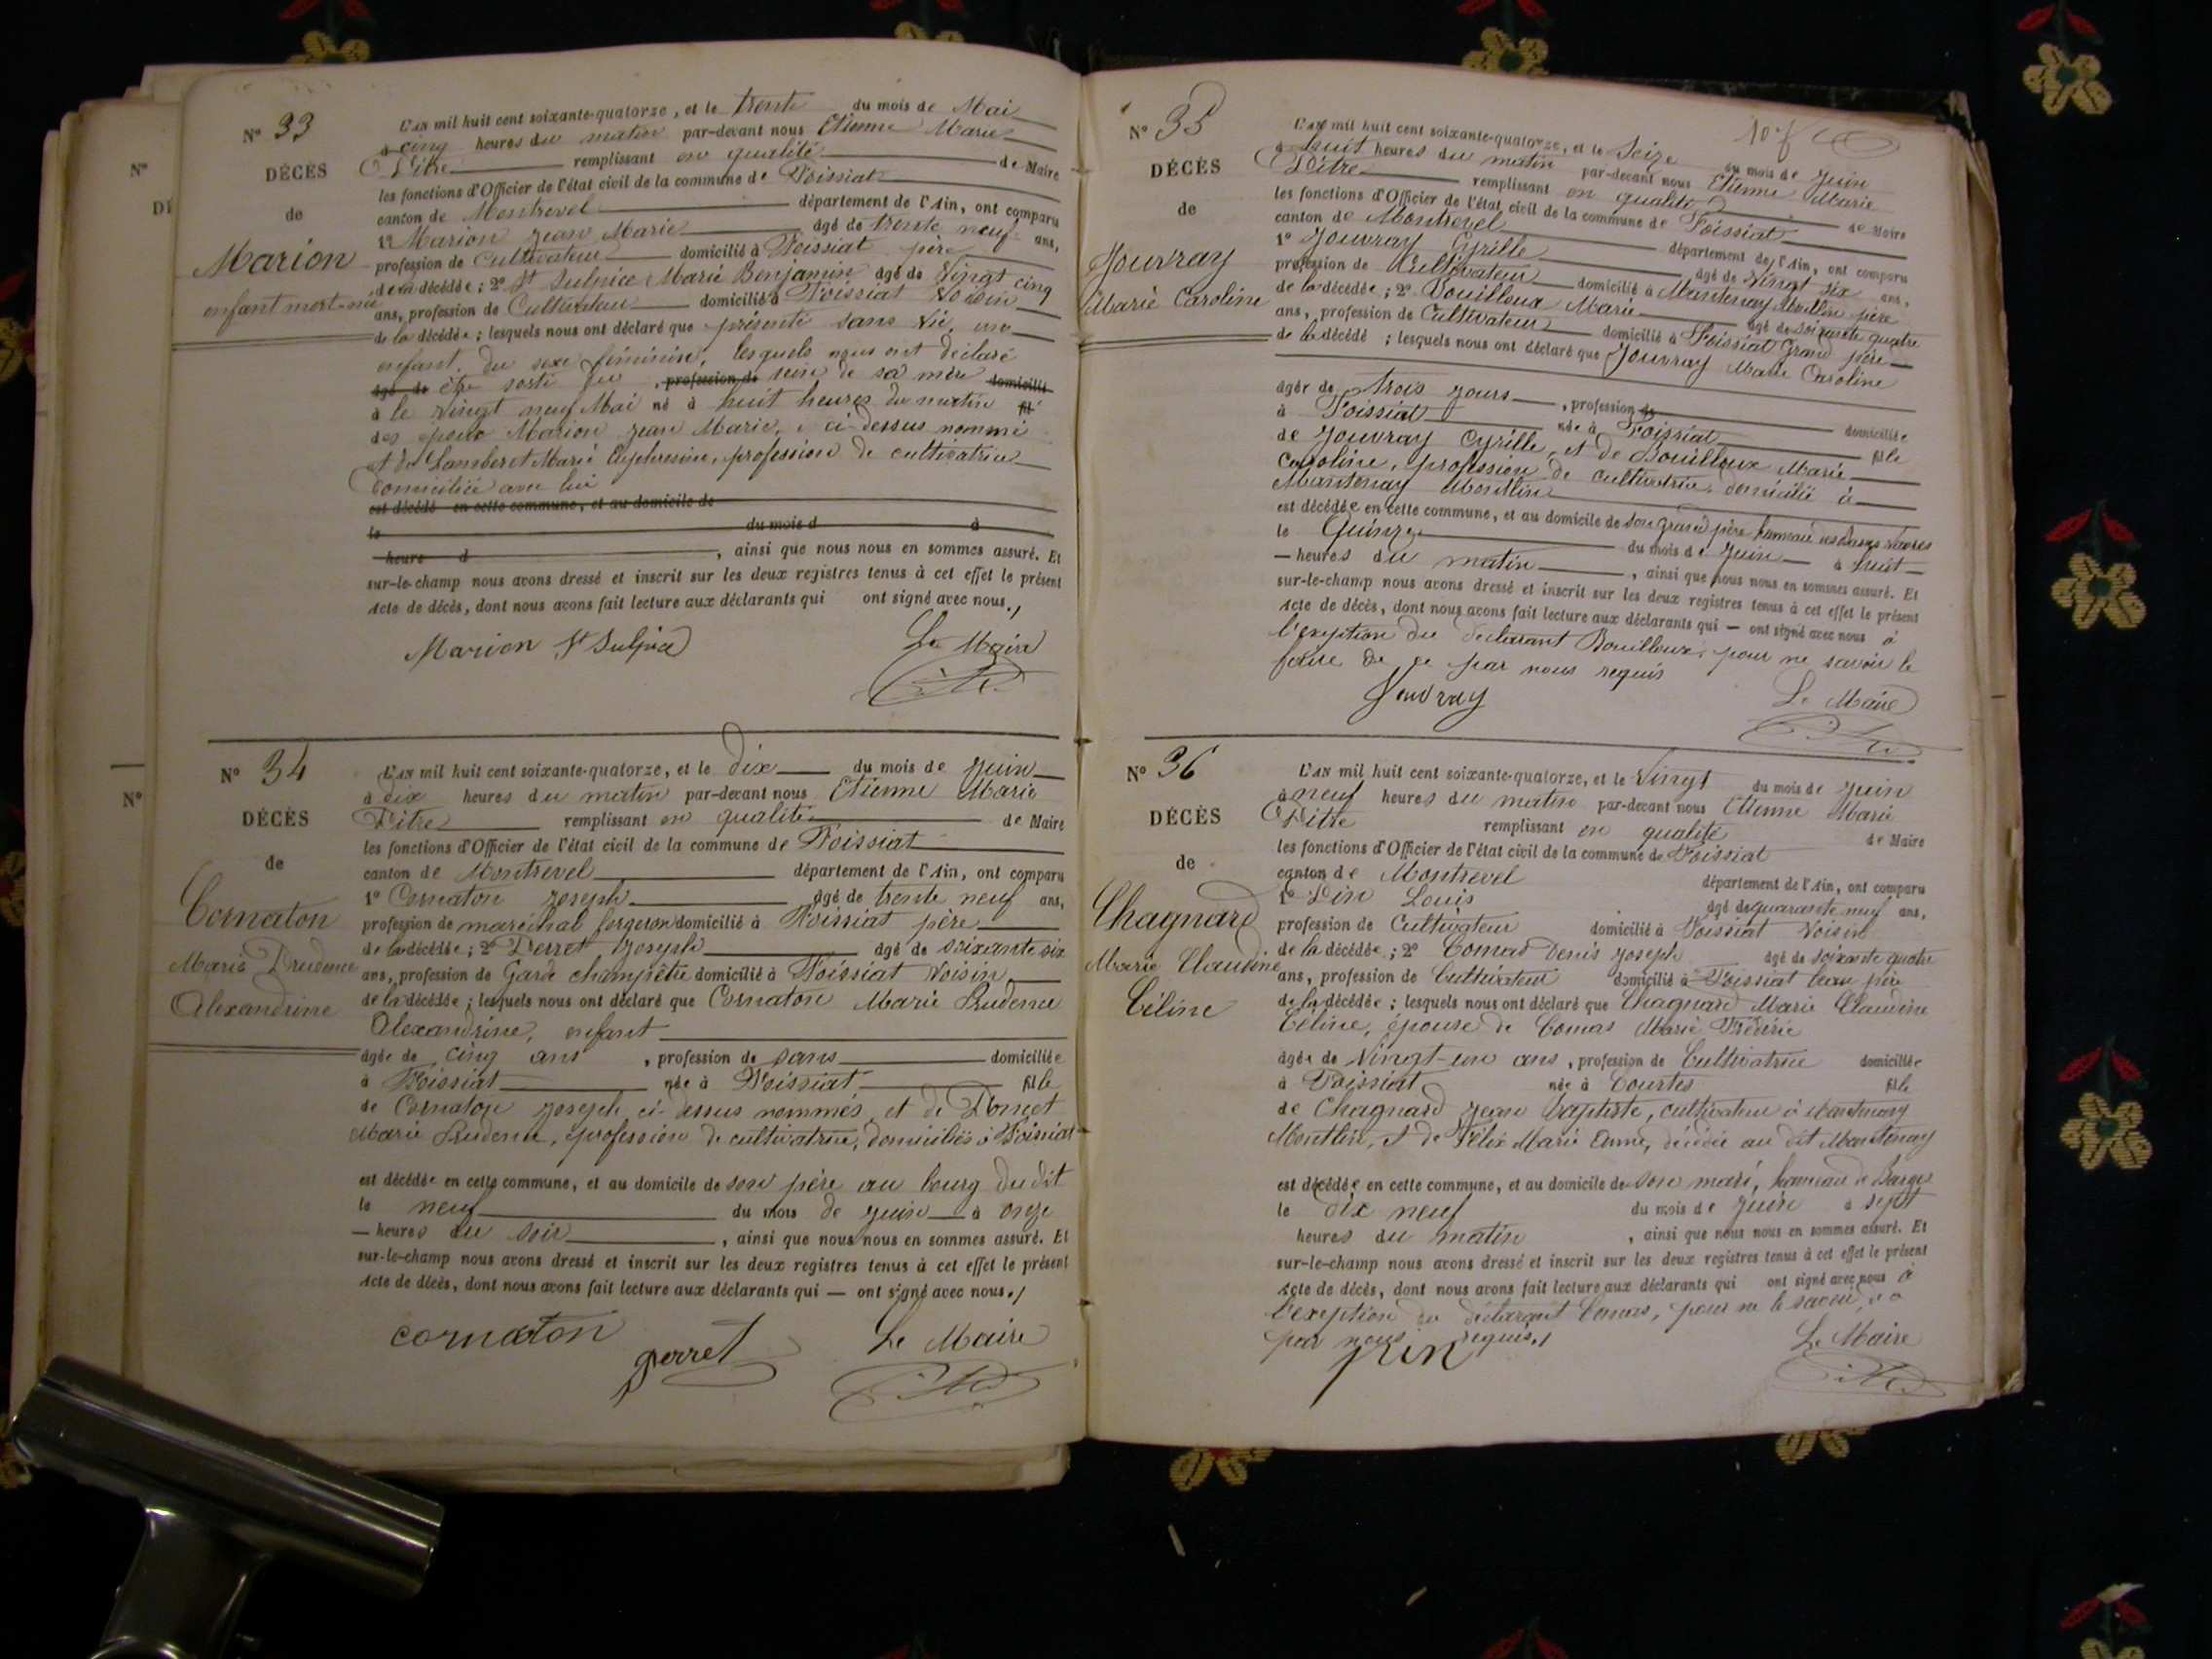 N°
DÉ
N°
N° 33
DÉCÈS
de
Marion
enfant mort-née
L'AN mil huit cent soixante-quatorze, et le trente du mois de Mai
à cinq heures du matin par-devant nous Etienne Marie
Pitre remplissant en qualité de Maire
les fonctions d'Officier de l'état civil de la commune de Foissiat
canton de Montrevel département de l'Ain, ont comparu
1° Marion Jean Marie âgé de trente neuf ans,
profession de Cultivateur domicilié à Foissiat père
de la décédée ; 2° St Sulpice Marie Benjamin âgé de Vingt cinq
ans, profession de Cultivateur domicilié à Foissiat Voisin
de la décédée ; lesquels nous ont déclaré que présenté sans vie, un
enfant du sexe féminin, lesquels nous ont déclaré
âgé de être sorti du , profession de sein de sa mère domicilié
à le vingt neuf Mai né à huit heures du matin fil
des époux Marion Jean Marie, ci-dessus nommé
et de Lamberet Marie Euphresine, profession de cultivatrice
domiciliée avec lui
est décédé en cette commune, et au domicile de
le du mois d à
heure d , ainsi que nous nous en sommes assuré. Et
sur-le-champ nous avons dressé et inscrit sur les deux registres tenus à cet effet le présent
acte de décès, dont nous avons fait lecture aux déclarants qui ont signé avec nous./
Marion St Sulpice Le Maire
N° 34
DÉCÈS
de
Cornaton
Marie Prudence
Alexandrine
L'AN mil huit cent soixante-quatorze, et le dix du mois de Juin
à dix heures du matin par-devant nous Etienne Marie
Pitre remplissant en qualité de Maire
les fonctions d'Officier de l'état civil de la commune de Foissiat
canton de Montrevel département de l'Ain, ont comparu
1° Cornaton Joseph âgé de trente neuf ans,
profession de maréchal forgeron domicilié à Foissiat père
de la décédée ; 2° Perret Joseph âgé de soixante six
ans, profession de Garde champêtre domicilié à Foissiat Voisin
de la décédée ; lesquels nous ont déclaré que Cornaton Marie Prudence
Alexandrine, enfant
âgée de cinq ans , profession de sans domiciliée
à Foissiat née à Foissiat fille
de Cornaton Joseph ci-dessus nommés, et de
Marie Prudence, profession de cultivatrice, domiciliés à Foissiat
est décédée en cette commune, et au domicile de son père au bourg du dit
le neuf du mois de Juin à onze
heures du soir , ainsi que nous nous en sommes assuré. Et
sur-le-champ nous avons dressé et inscrit sur les deux registres tenus à cet effet le présent
acte de décès, dont nous avons fait lecture aux déclarants qui — ont signé avec nous./
cornaton perret Le Maire
N° 35
DÉCÈS
de
Jouvray
Marie Caroline
L'AN mil huit cent soixante-quatorze, et le Seize du mois de Juin
à huit heures du matin par-devant nous Etienne Marie
Pitre remplissant en qualité de Maire
les fonctions d'Officier de l'état civil de la commune de Foissiat
canton de Montrevel département de l'Ain, ont comparu
1° Jouvray Cyrille âgé de Vingt six ans,
profession de Cultivateur domicilié à Mantenay Montlin père
de la décédée ; 2° Bouilloux Marie âgé de soixante quatre
ans, profession de Cultivateur domicilié à Foissiat Grand père
de la décédé ; lesquels nous ont déclaré que Jouvray Marie Caroline
âgée de trois jours , profession de domiciliée
à Foissiat née à Foissiat fille
de Jouvray Cyrille, et de Bouilloux Marie
Caroline, profession de cultivatrice, domicilié à
Mantenay Montlin
est décédée en cette commune, et au domicile de son grand père hameau des
le Quinze du mois de Juin à huit
— heures du matin , ainsi que nous nous en sommes assuré. Et
sur-le-champ nous avons dressé et inscrit sur les deux registres tenus à cet effet le présent
acte de décès, dont nous avons fait lecture aux déclarants qui — ont signé avec nous à
l'exeption du déclarant Bouilloux, pour ne savoir le
faire de ce par nous requis
Jouvray Le Maire
N° 36
DÉCÈS
de
Chagnard
Marie Claudine
Céline
L'AN mil huit cent soixante-quatorze, et le Vingt du mois de Juin
à neuf heures du matin par-devant nous Etienne Marie
Pitre remplissant en qualité de Maire
les fonctions d'Officier de l'état civil de la commune de Foissiat
canton de Montrevel département de l'Ain, ont comparu
1° Pin Louis âgé de quarante neuf ans,
profession de Cultivateur domicilié à Foissiat Voisin
de la décédée ; 2° Comas Denis Joseph âgé de soixante quatre
ans, profession de Cultivateur domicilié à Foissiat beau père
de la décédée ; lesquels nous ont déclaré que Chagnard Marie Claudine
Céline, épouse de Comas Marie Frédéric
âgée de Vingt-un ans , profession de Cultivatrice domiciliée
à Foissiat née à Courtes fille
de Chagnard Jean Baptiste, cultivateur à Mantenay
Montlin, et de Félix Marie Anne, décédée au dit Mantenay
est décédée en cette commune, et au domicile de son mari, hameau de Barges
le dix neuf du mois de Juin à sept
heures du matin , ainsi que nous nous en sommes assuré. Et
sur-le-champ nous avons dressé et inscrit sur les deux registres tenus à cet effet le présent
acte de décès, dont nous avons fait lecture aux déclarants qui ont signé avec nous à
l'exeption du déclarant Comas, pour ne le savoir
par nous requis./
pin Le Maire